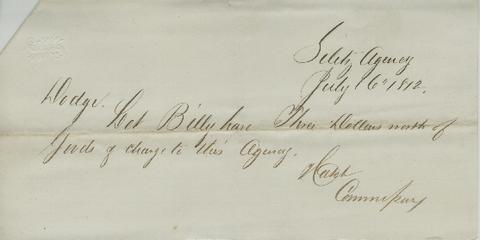 Siletz Agency
July 16th 1872.
Dodge. Let Billy have Three Dollars worth of
goods & charge to this Agency.
Commissary